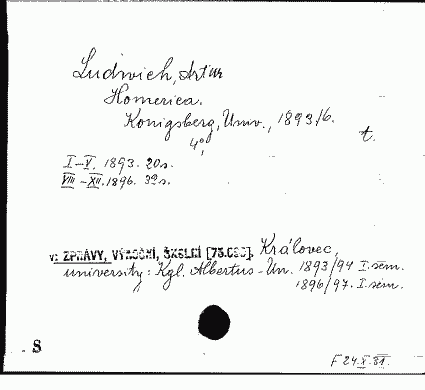 Ludwich, Artur
Homerica.
Königsberg, Univ., 1893/6.
4°, t.
I-V. 1893. 20 s.
VIII-XII. 1896. 32 s.
v: ZPRÁVY, VÝROČNÍ, ŠKOLNÍ [73.C33]. Královec,
university: Kgl. Albertus-Un. 1893/94 I. sem.
1896/97. I. sem.
S
F 24.X.81.